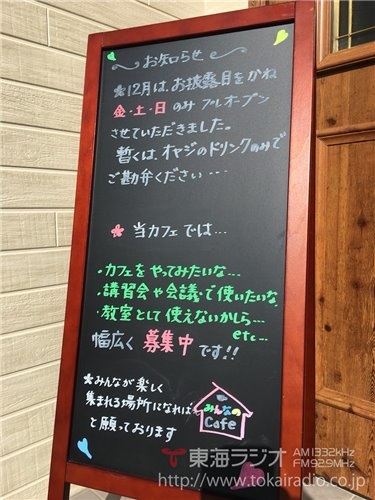 お知らせ
✽12月は、お披露目をかね
金・土・日のみプレオープン
させていただきました。
暫くは、オヤジのドリンクのみで
ご勘弁ください…
✽ 当カフェでは…
・カフェをやってみたいな…
・講習会や会議で使いたいな…
・教室として使えないかしら…
etc…
幅広く 募集中 です!!
✽みんなが楽しく
集まれる場所になれば
と願っております
みんなの
Cafe
東海ラジオ AM1332kHz
FM92.9MHz
http://www.tokairadio.co.jp